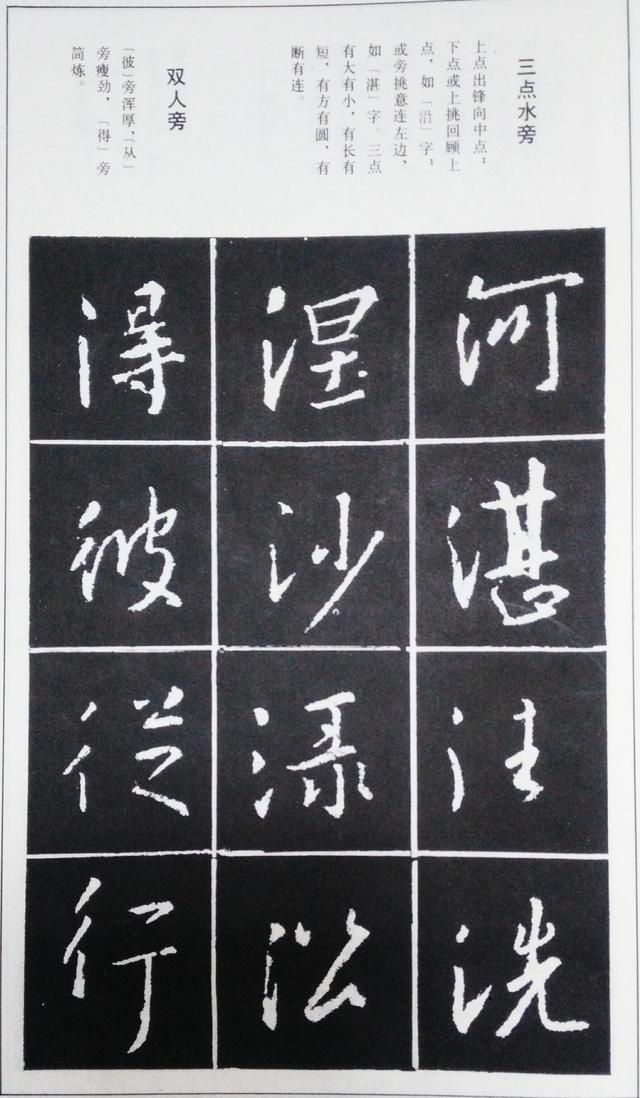 三点水旁
上点出锋向中点；
下点或上挑回顾上
点，如「沿」字；
或旁挑意连左边，
如「湛」字。三点
有大有小，有长有
短，有方有圆，有
断有连。
双人旁
「彼」旁浑厚，「从」
旁瘦劲，「得」旁
简炼。
河
湛
注
洗
涅
沙
沿
得
彼
從
行